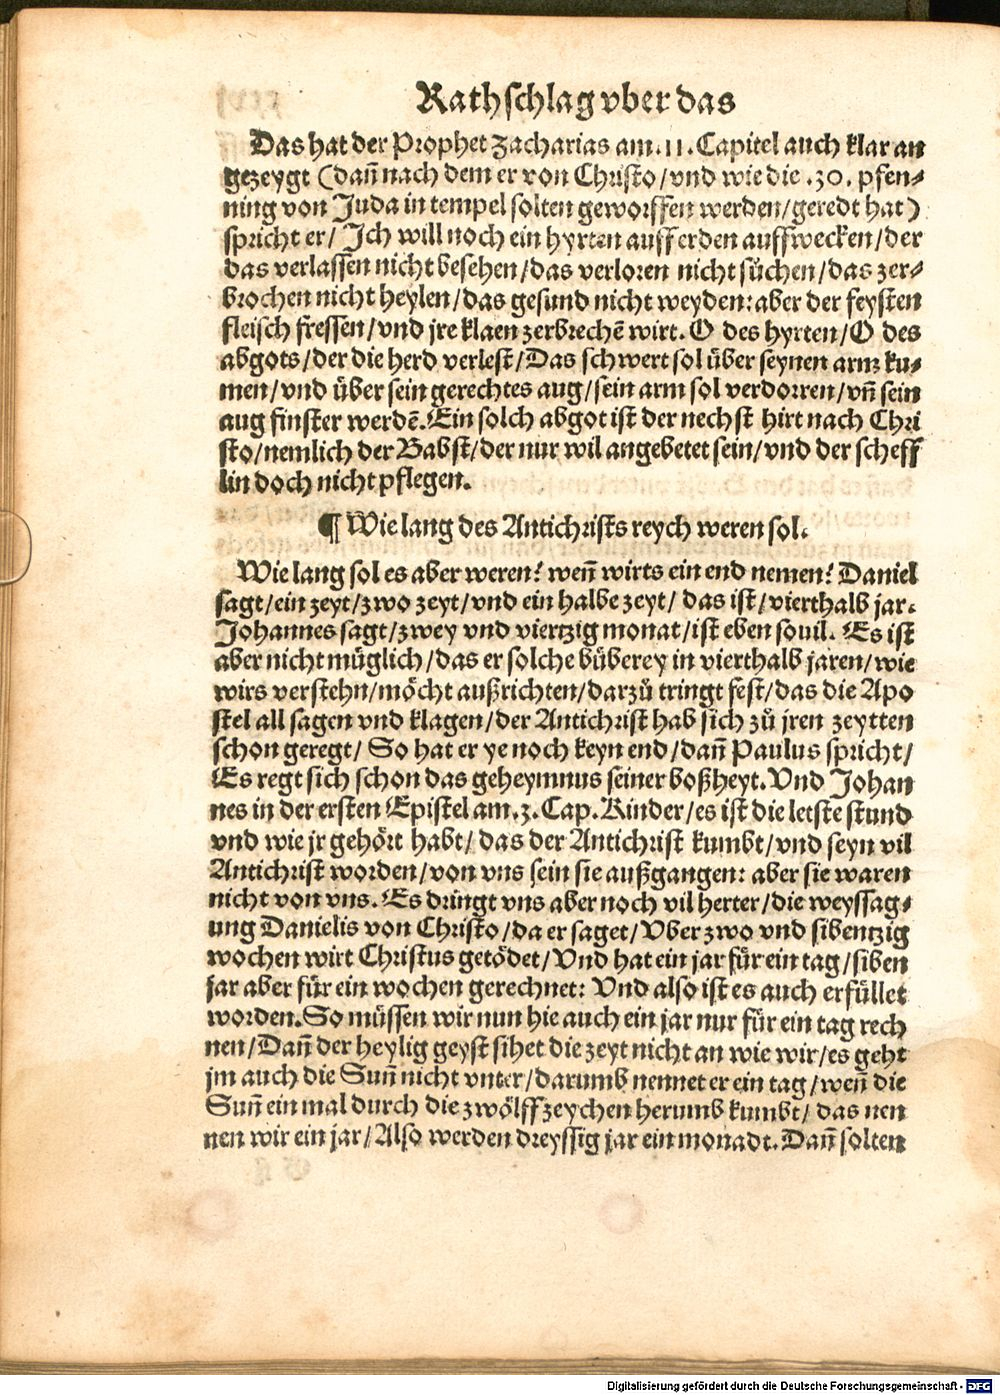 Rathschlag vber das
Das hat der Prophet Zacharias am .11. Capitel auch klar an
gezeygt (dañ nach dem er von Christo/vnd wie die .30. pfen⸗
ning von Juda in tempel solten geworffen werden/geredt hat)
spricht er/ Ich will noch ein hyrten auff erden auffwecken/der
das verlassen nicht besehen/das verloren nicht sůchen/das zer⸗
brochen nicht heylen/das gesund nicht weyden: aber der feysten
fleisch fressen/vnd jre klaen zerbrechẽ wirt. O des hyrten/O des
abgots/der die herd verlest/Das schwert sol über seynen arm ku⸗
men/vnd über sein gerechtes aug/sein arm sol verdorren/vñ sein
aug finster werdẽ. Ein solch abgot ist der nechst hirt nach Chri
sto/nemlich der Babst/der nur wil angebetet sein/vnd der scheff
lin doch nicht pflegen.
¶ Wie lang des Antichrists reych weren sol.
Wie lang sol es aber weren? weñ wirts ein end nemen? Daniel
sagt/ein zeyt/zwo zeyt/vnd ein halbe zeyt/ das ist/vierthalb jar.
Johannes sagt/zwey vnd viertzig monat/ist eben souil. Es ist
aber nicht müglich/das er solche büberey in vierthalb jaren/wie
wirs verstehn/möcht außrichten/darzů tringt fest/das die Apo
stel all sagen vnd klagen/der Antichrist hab sich zů jren zeytten
schon geregt/ So hat er ye noch keyn end/dañ Paulus spricht/
Es regt sich schon das geheymnus seiner boßheyt. Vnd Johan
nes in der ersten Epistel am .z. Cap. Kinder/es ist die letste stund
vnd wie jr gehört habt/ das der Antichrist kumbt/vnd seyn vil
Antichrist worden/von vns sein sie außgangen: aber sie waren
nicht von vns. Es dringt vns aber noch vil herter/die weyssag⸗
ung Danielis von Christo/da er saget/Vber zwo vnd sibentzig
wochen wirt Christus getödet/Vnd hat ein jar für ein tag/siben
jar aber für ein wochen gerechnet: Vnd also ist es auch erfüllet
worden. So müssen wir nun hie auch ein jar nur für ein tag rech
nen/Dañ der heylig geyst sihet die zeyt nicht an wie wir/es geht
jm auch die Suñ nicht vnter/darumb nennet er ein tag/weñ die
Suñ ein mal durch die zwölff zeychen herumb kumbt/ das nen
nen wir ein jar/Also werden dreyssig jar ein monadt. Dañ solten
Digitalisierung gefördert durch die Deutsche Forschungsgemeinschaft - DFG